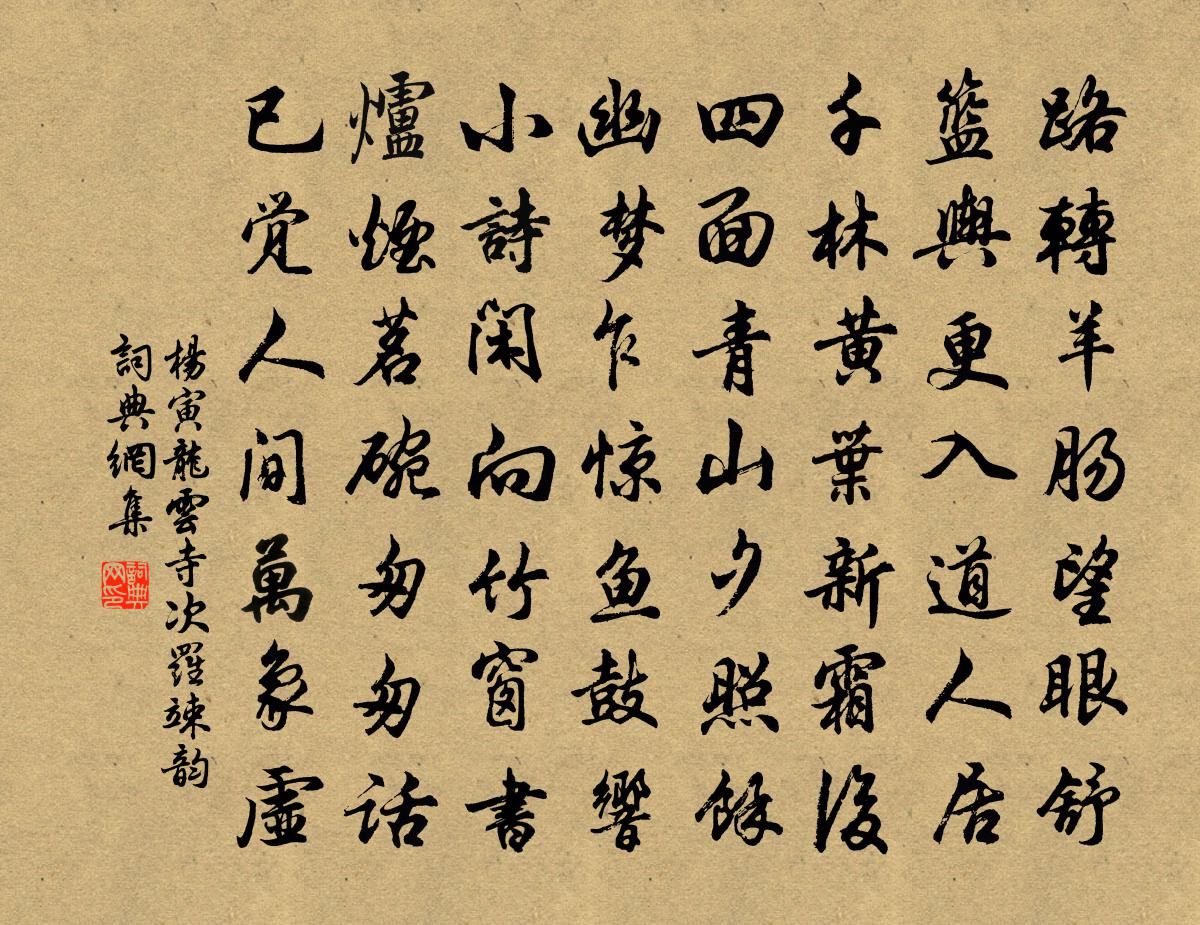 路轉羊肠望眼舒
籃輿更入道人居
千林黄葉新霜後
四面青山夕照餘
幽梦乍惊鱼鼓響
小詩閑向竹窗書
爐煙茗碗匆匆话
已觉人间萬象虛
楊寅龍雲寺次羅竦韵
詞典網集
詞典网印